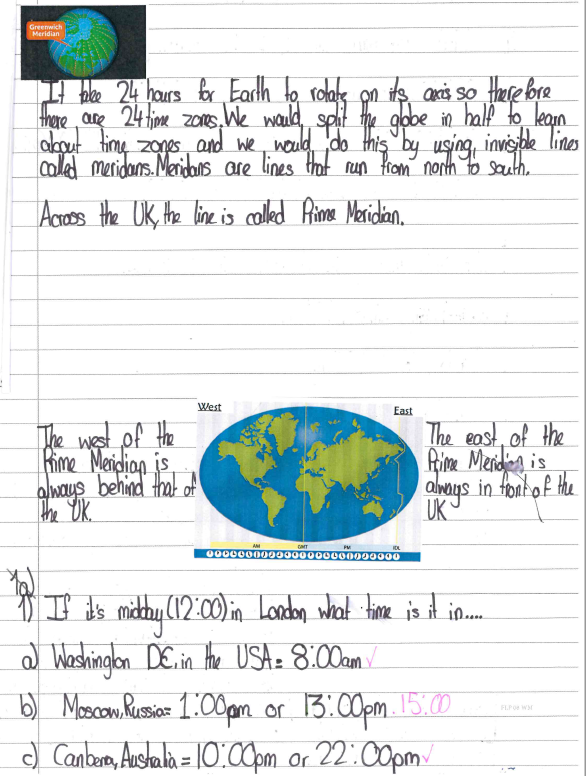 Greenwich
Meridian
It take 24 hours for Earth to rotate on its axis so therefore
there are 24 time zones. We would split the globe in half to learn
about time zones and we would do this by using invisible lines
called meridans. Meridans are lines that run from north to south.
Across the UK, the line is called Prime Meridian.
West
East
The west of the
Prime Meridian is
always behind that of
the UK.
The east of the
Prime Meridian is
always in front of the
UK
AM
GMT
PM
IDL
1) If it's midday (12:00) in London what time is it in....
a) Washington DC, in the USA = 8:00am ✓
b) Moscow, Russia = 1:00pm or 13:00pm 15:00
c) Canbera, Australia = 10:00pm or 22:00pm ✓